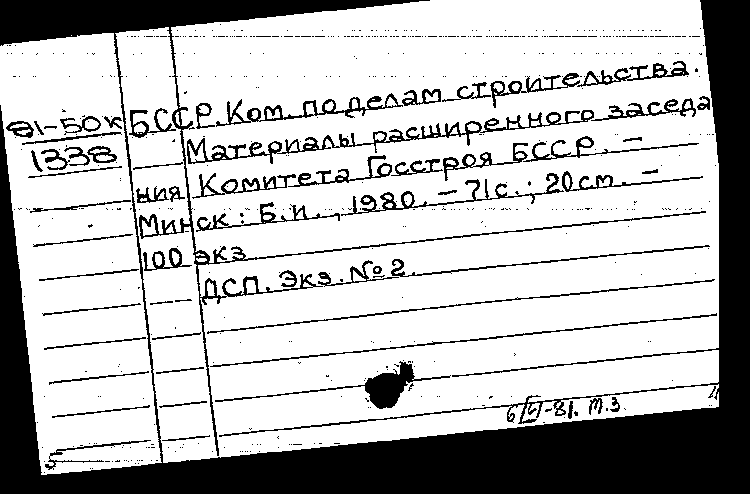 81-50к БССР. Ком. по делам строительства.
1338 Материалы расширенного заседа
ния Комитета Госстроя БССР. –
Минск: Б.и., 1980. – 71с.; 20см. –
100 экз
ДСП. Экз. №2.
81. т.з
5